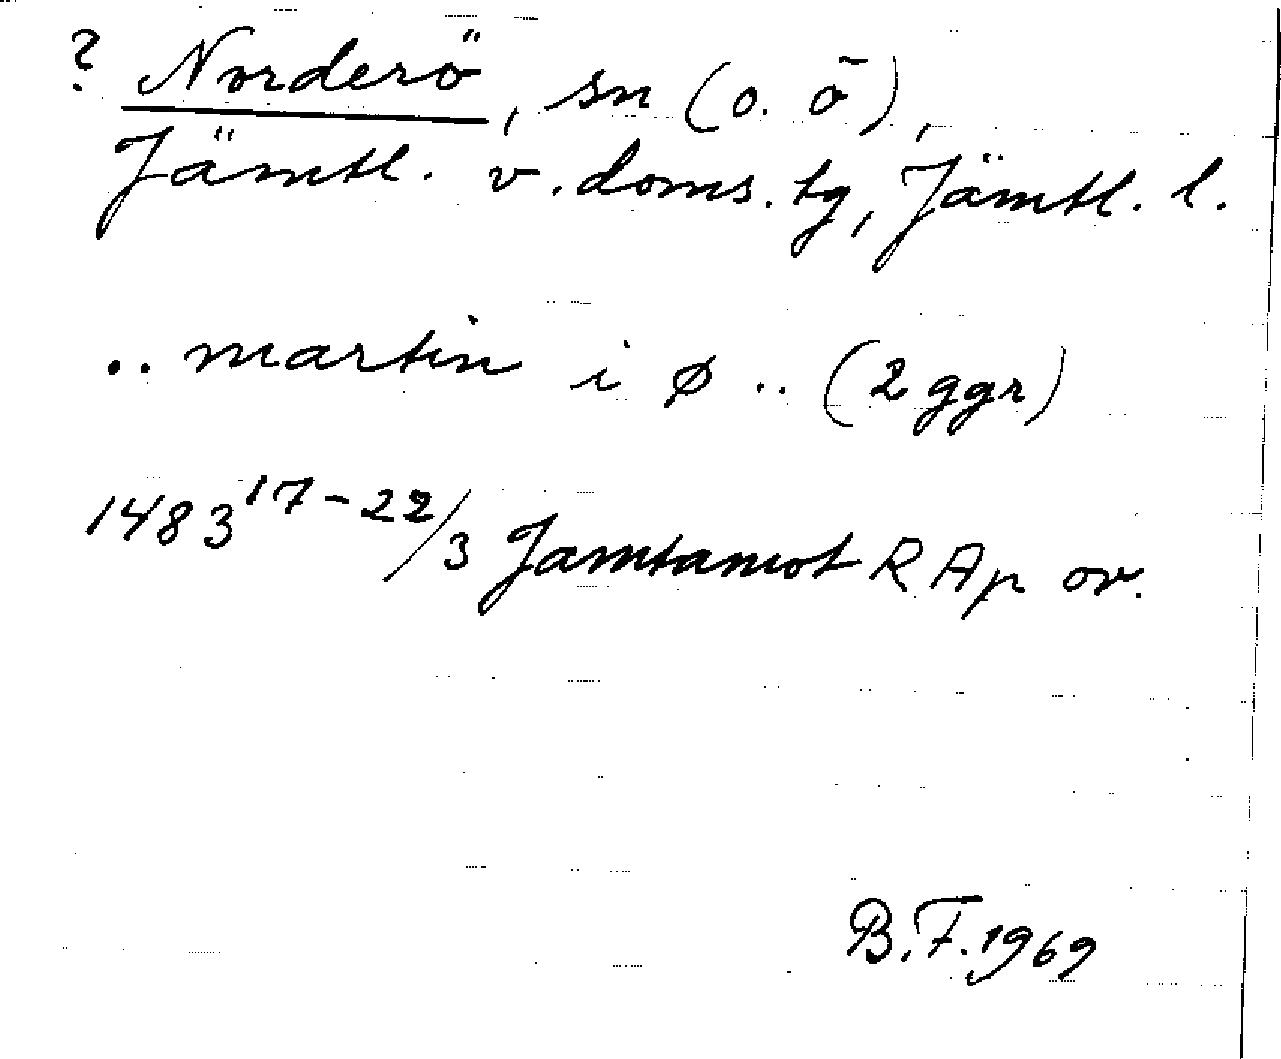 ? Norderö, sn (o. ö),
Jämtl. v. doms. tg, Jämtl. l.
.. martin i ø .. (2 ggr)
1483 17-22/3 Jamtamot RAp or.
B.F. 1969